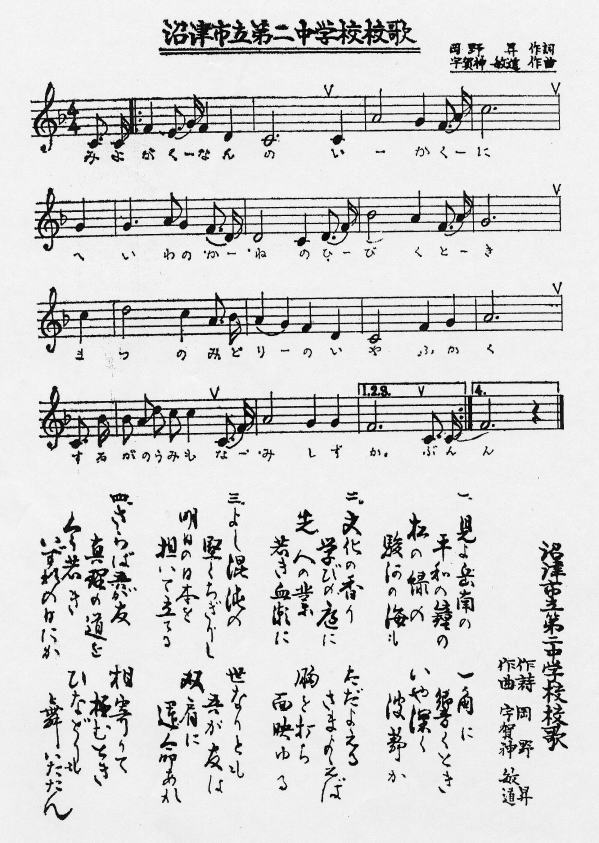 沼津市立第二中学校校歌
岡野 昇 作詞
宇賀神 敏道 作曲
みよがくーなんのいーかくーに
へいわのかーねのひーびくとーき
まつのみどりーのいやふかく
するがのうみもなーみしずか。ぶんん
1.2.3.
4.
沼津市立第二中学校校歌
作詩 岡野 昇
作曲 宇賀神 敏道
一、見よ岳南の 一角に
平和の鐘の 響くとき
松の緑の いや深く
駿河の海も 波静か
二、文化の香り ただよえる
学びの庭に
先人の業 胸を打ち
若き血潮に 面映ゆる
三、よし混沌の 世なりとも
堅くちぎりし 吾が友は
明日の日本を 双肩に
担いて立てる 運命あれ
四、さらば吾が友 相寄りて
真理の道を 極むとき
若き ひなどりも
いずれの日にか 舞いたたん